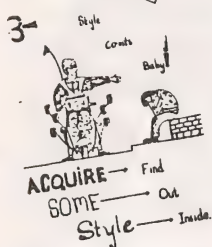 3-
Style
Counts
Baby!
A
ACQUIRE → Find
SOME → Out
Style → Inside.